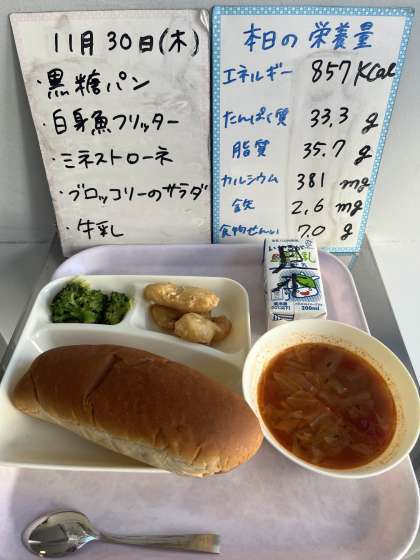 11月30日(木)
・黒糖パン
・白身魚フリッター
・ミネストローネ
・ブロッコリーのサラダ
・牛乳
本日の栄養量
エネルギー 857Kcal
たんぱく質 33.3 g
脂質 35.7 g
カルシウム 381 mg
鉄 2.6 mg
食物せんい 7.0 g
200ml